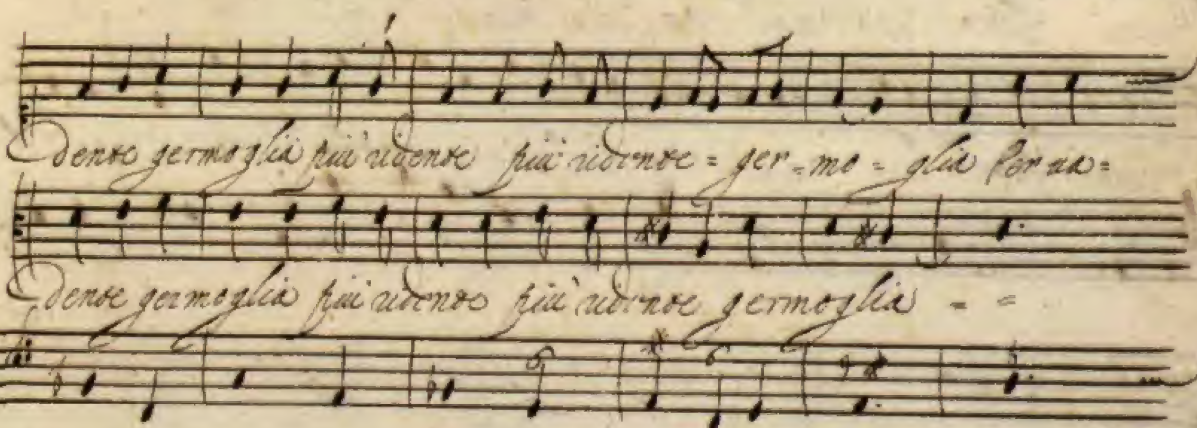 dente germoglia più ridente più ridente = ger = mo = glia Per ua =
dente germoglia più ridente più ridente germoglia = =